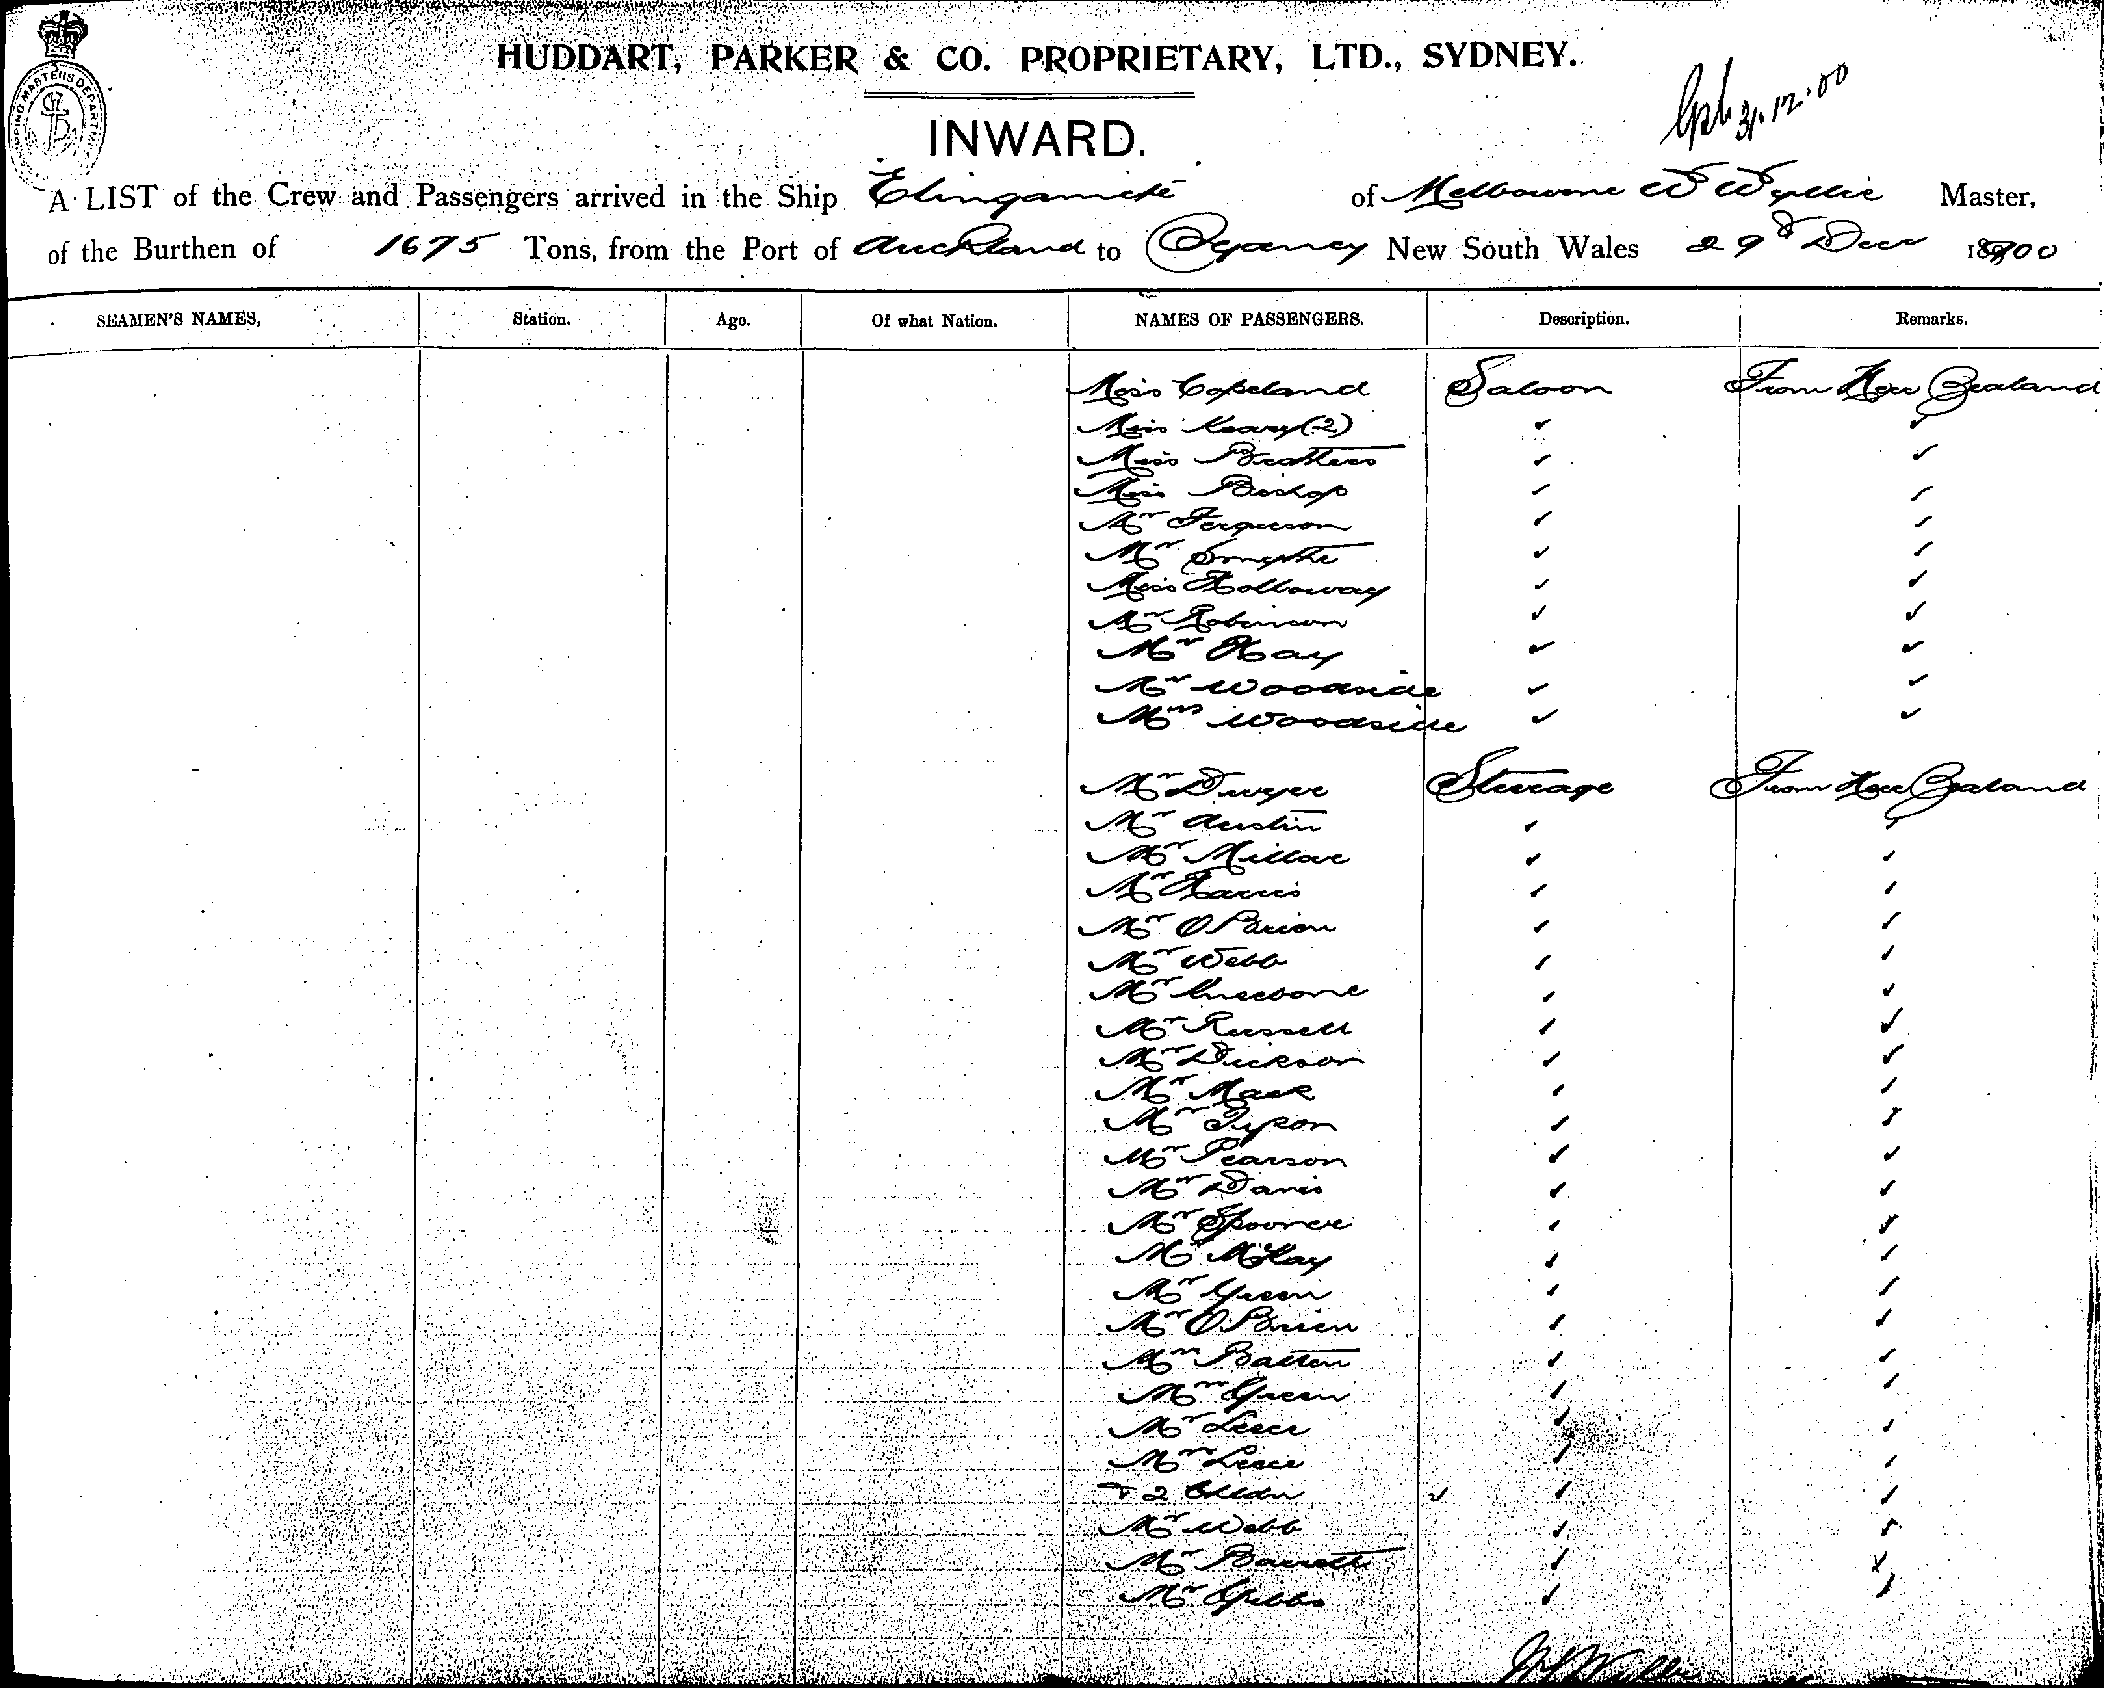 HUDDART, PARKER & CO. PROPRIETARY, LTD., SYDNEY.
31.12.00
INWARD.
A LIST of the Crew and Passengers arrived in the Ship Elingamite of Melbourne W Wyllie Master,
of the Burthen of 1675 Tons, from the Port of Auckland to Sydney New South Wales 29th Decr 1900
SEAMEN'S NAMES, Station. Age. Of what Nation. NAMES OF PASSENGERS. Description. Remarks.
Miss Copeland Saloon From New Zealand
Miss Keary (2)
Miss Brothers
Miss Bishop
Mr Ferguson
Mr Smythe
Miss Holloway
Mr Robinson
Mr Hay
Mr Woodside
Mrs Woodside
Mr Dwyer Steerage From New Zealand
Mr Austin
Mr Millar
Mr Harris
Mr O'Brien
Mr Webb
Mr
Mr Russell
Mr Dickson
Mr Mack
Mr Tyson
Mr Pearson
Mr Davis
Mr Spooner
Mr McKay
Mr Green
Mr O'Brien
Mrs Batten
Mrs Green
Mr
Mrs
& 2 Childn
Mr Webb
Mr Barrett
Mr Gibbs
Wyllie